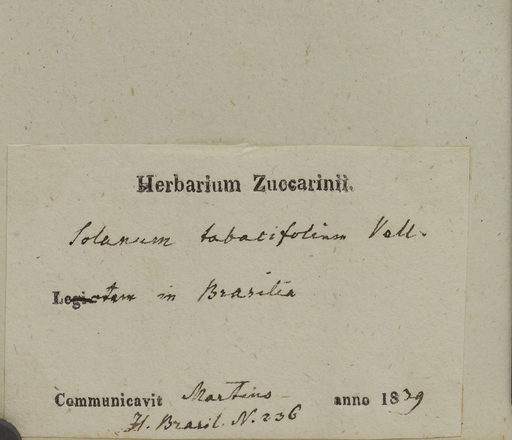 Herbarium Zuccarinii.
Solanum tabacifolium Vell.
Legi in Brasilia
Communicavit Martius anno 1839
H. Brasil. N. 236